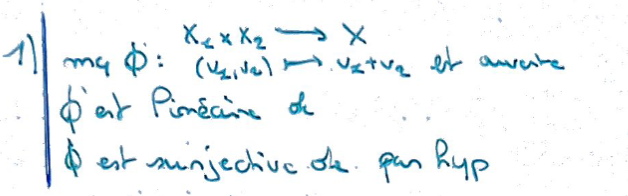 1) mq ϕ : X₁ × X₂ ⟶ X
(v₁,v₂) ⟼ v₁+v₂ et ouverte
ϕ est linéaire ok
ϕ est surjective ok par hyp